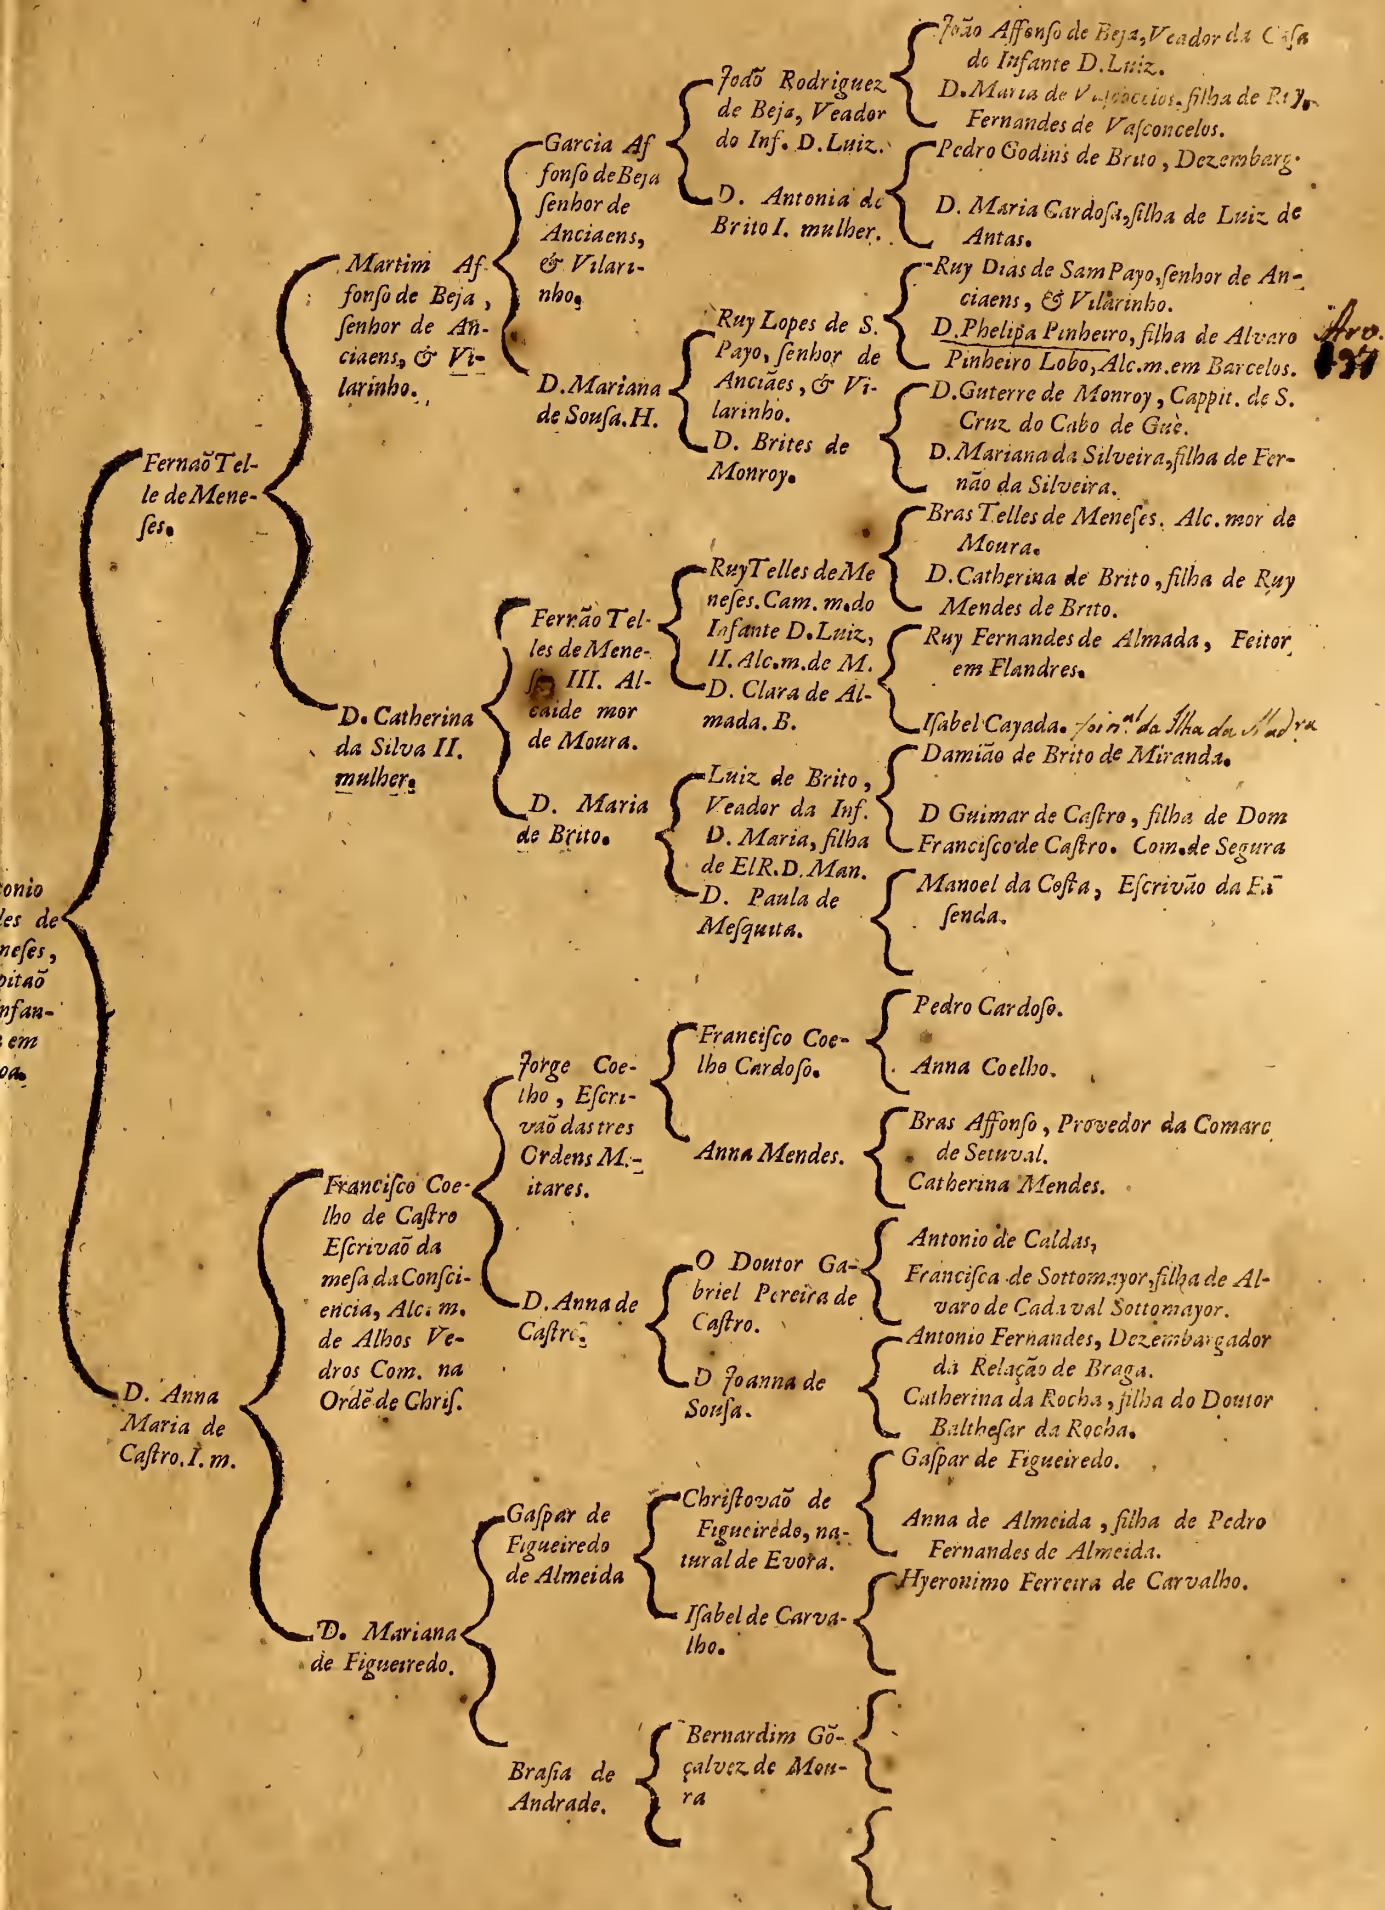 onio
les de
neſes,
pitaõ
nfan-
em
oa.
Fernaõ Tel-
le de Mene-
ſes.
D. Anna
Maria de
Caſtro. I. m.
Martim Af-
fonſo de Beja,
ſenhor de An-
ciaens, & Vi-
larinho.
D. Catherina
da Silva II.
mulher.
Franciſco Coe-
lho de Caſtro
Eſcrivaõ da
meſa da Conſci-
encia, Alc. m.
de Alhos Ve-
dros Com. na
Ordẽ de Chriſ.
D. Mariana
de Figueiredo.
Garcia Af
fonſo de Beja
ſenhor de
Anciaens,
& Vilari-
nho.
D. Mariana
de Souſa. H.
Fernão Tel-
les de Mene-
III. Al-
caide mor
de Moura.
D. Maria
de Brito.
Jorge Coe-
lho, Eſcri-
vaõ das tres
Ordens M.-
itares.
D. Anna de
Caſtro.
Gaſpar de
Figueiredo
de Almeida
Braſia de
Andrade.
Joaõ Rodriguez
de Beja, Veador
do Inf. D. Luiz.
D. Antonia de
Brito I. mulher.
Ruy Lopes de S.
Payo, ſenhor de
Anciães, & Vi-
larinho.
D. Brites de
Monroy.
Ruy Telles de Me
neſes. Cam. m. do
Infante D. Luiz,
II. Alc. m. de M.
D. Clara de Al-
mada. B.
Luiz de Brito,
Veador da Inf.
D. Maria, filha
de ElR. D. Man.
D. Paula de
Meſquita.
Franciſco Coe-
lho Cardoſo.
Anna Mendes.
O Doutor Ga-
briel Pereira de
Caſtro.
D Joanna de
Souſa.
Chriſtovaõ de
Figueiredo, na-
tural de Evora.
Iſabel de Carva-
lho.
Bernardim Gõ-
çalvez de Mou-
ra
João Affonſo de Beja, Veador da Caſa
do Infante D. Luiz.
D. Maria de filha de Ruy
Fernandes de Vaſconcelos.
Pedro Godins de Brito, Dezembarg.
D. Maria Cardoſa, filha de Luiz de
Antas.
Ruy Dias de Sam Payo, ſenhor de An-
ciaens, & Vilarinho.
D. Phelipa Pinheiro, filha de Alvaro
Pinheiro Lobo, Alc. m. em Barcelos.
Arv.
D. Guterre de Monroy, Cappit. de S.
Cruz do Cabo de Guè.
D. Mariana da Silveira, filha de Fer-
não da Silveira.
Bras Telles de Meneſes. Alc. mor de
Moura.
D. Catherina de Brito, filha de Ruy
Mendes de Brito.
Ruy Fernandes de Almada, Feitor
em Flandres.
Iſabel Cayada. foi n.al da Ilha da Madra
Damião de Brito de Miranda.
D Guimar de Caſtro, filha de Dom
Franciſco de Caſtro. Com. de Segura
Manoel da Coſta, Eſcrivão da Fa
ſenda.
Pedro Cardoſo.
Anna Coelho.
Bras Affonſo, Provedor da Comarc
de Setuval.
Catherina Mendes.
Antonio de Caldas,
Franciſca de Sottomayor, filha de Al-
varo de Cadaval Sottomayor.
Antonio Fernandes, Dezembargador
da Relação de Braga.
Catherina da Rocha, filha do Doutor
Baltheſar da Rocha.
Gaſpar de Figueiredo.
Anna de Almeida, filha de Pedro
Fernandes de Almeida.
Hyeronimo Ferreira de Carvalho.